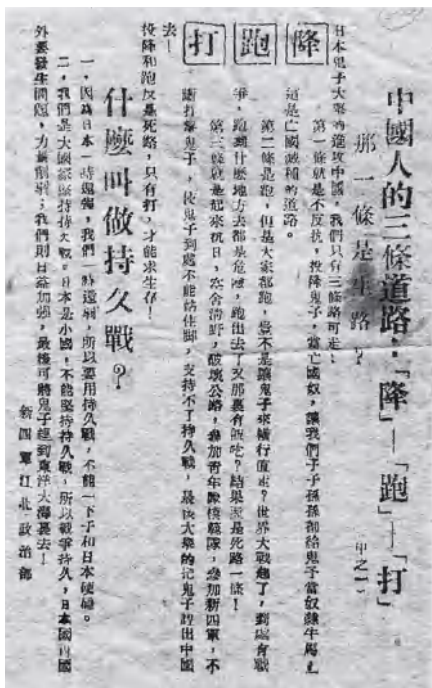 中國人的三條道路：「降」—「跑」—「打」
那一條是生路？
甲之一
日本鬼子大舉的進攻中國，我們只有三條路可走：
降 跑 打
第一條就是不反抗，投降鬼子，當亡國奴，讓我們子子孫孫都給鬼子當奴隸牛馬，
這是亡國滅種的道路。
第二條是跑，但是大家都跑，豈不是讓鬼子來橫行直走？世界大戰起了，到處有戰
爭，跑到什麼地方去都是危險，跑出去了又那裏有飯吃？結果還是死路一條！
第三條就是起來抗日，空舍清野，破壞公路，參加青年隊模範隊，參加新四軍，不
斷打擊鬼子，使鬼子到處不能站住腳，支持不了持久戰，最後大舉的把鬼子趕出中國
去！
投降和跑反是死路，只有打，才能求生存！
什麼叫做持久戰？
一、因為日本一時還強，我們一時還弱，所以要用持久戰，不能一下子和日本硬碰。
二、我們是大國能堅持持久戰。日本是小國，不能堅持持久戰，所以戰爭持久，日本國內國
外要發生問題，力量削弱；我們則日益加強，最後可將鬼子趕到東洋大海裏去！
新四軍江北政治部